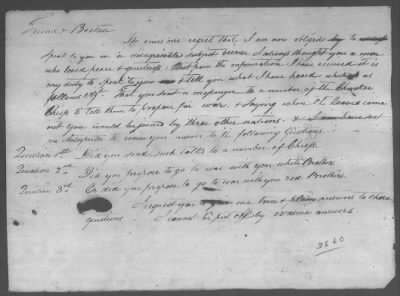 Friend & Brother
It gives me regret that I am now obliged to
speak to you on a disagreeable subject because I always thought you a man
who loved peace & quietness. But from the information I have received it is
my duty to speak to you & tell you what I have heard which is as
follows Viz. That you sent a messenger to a number of the Cherokee
Chiefs to tell them to prepare for war & saying when the leaves come
out you would be joined by three other nations. & I have sent
an Interpreter to receive your answer to the following Questions.
Question 1st. Did you send such talks to a number of Chiefs.
Question 2nd. Did you propose to go to war with your white Brother
Question 3rd. Or did you propose to go to war with your red Brothers.
I request you give me true & plain answers to those
questions. I cannot be put off by evasive answers.
3860